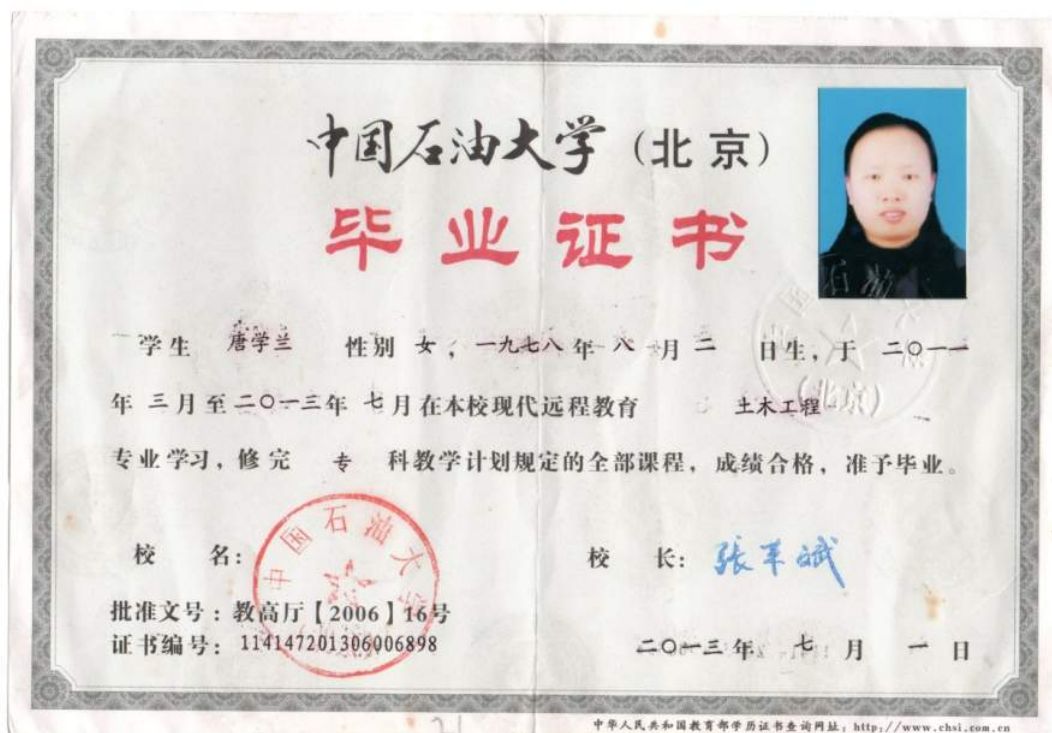 中国石油大学（北京）
毕业证书
学生 唐学兰 性别 女，一九七八年 八 月 二 日生，于 二〇一一
年 三月至二〇一三年 七月在本校现代远程教育 土木工程
专业学习，修完 专 科教学计划规定的全部课程，成绩合格，准予毕业。
校 名： 校 长：张来斌
中国石油大学
批准文号：教高厅【2006】16号
证书编号：114147201306006898
二〇一三年 七 月 一 日
中华人民共和国教育部学历证书查询网址：http://www.chsi.com.cn